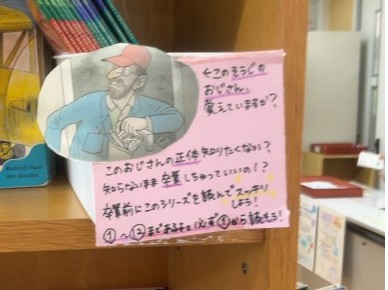 このそうじの
おじさん、
覚えていますか?
このおじさんの正体知りたくない?
知らないまま卒業しちゃっていいの!?
卒業前にこのシリーズを読んでスッキリ
しよう!
①〜⑫まであるよ。必ず①から読もう!
Roderick Hunt
Alex Brychta